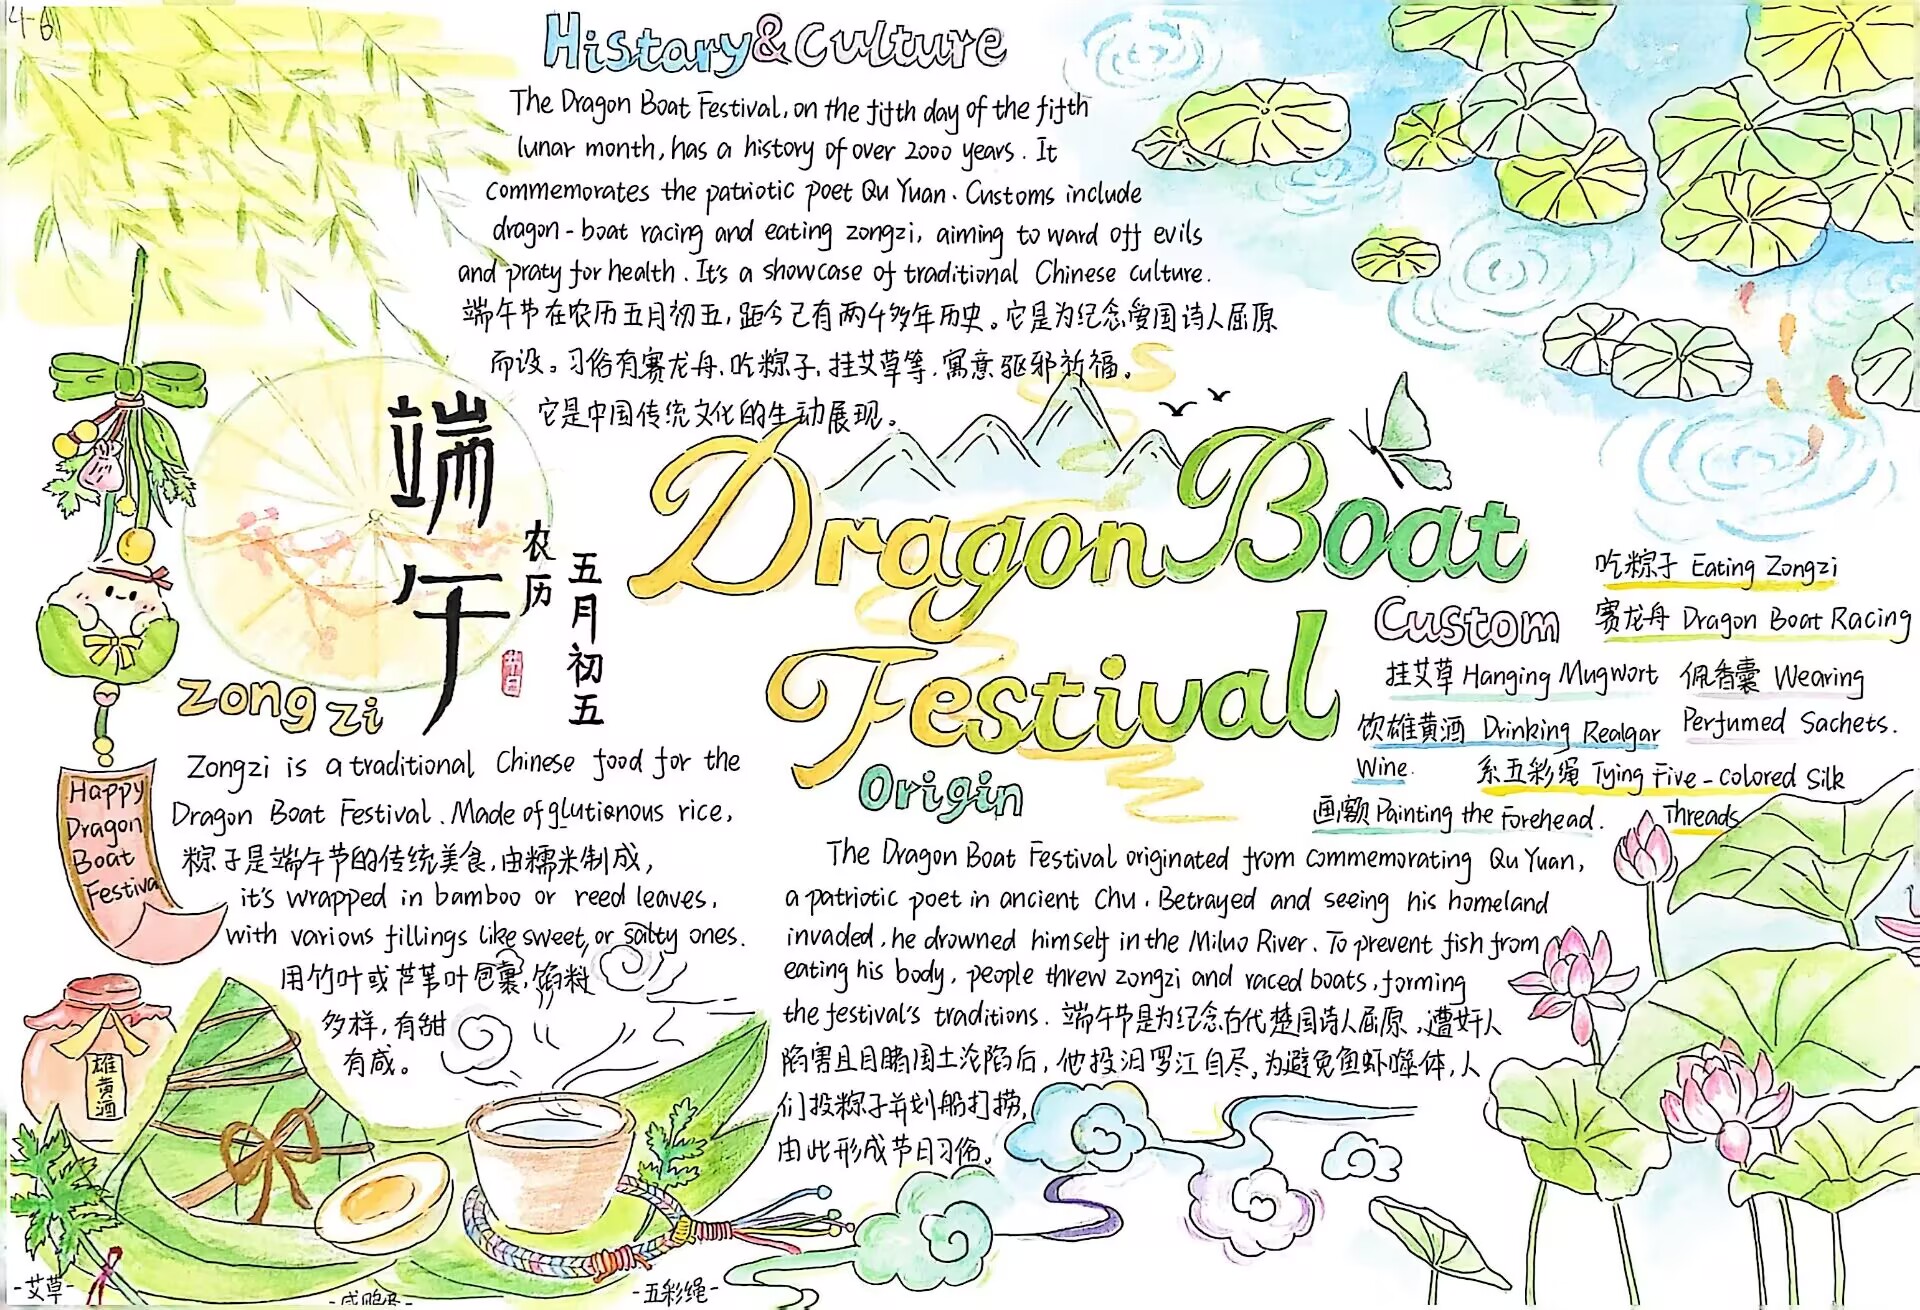 4-6
Histary&Culture
The Dragon Boat Festival, on the fifth day of the fifth
lunar month, has a history of over 2000 years. It
commemorates the patriotic poet Qu Yuan. Customs include
dragon-boat racing and eating zongzi, aiming to ward off evils
and praty for health. It's a showcase of traditional Chinese culture.
端午节在农历五月初五,距今已有两千多年历史。它是为纪念爱国诗人屈原
而设。习俗有赛龙舟,吃粽子,挂艾草等,寓意驱邪祈福。
它是中国传统文化的生动展现。
端午
农历
五月初五
Dragon Boat
Festival
Zongzi
Zongzi is a traditional Chinese food for the
Dragon Boat Festival. Made of glutionous rice,
粽子是端午节的传统美食,由糯米制成,
it's wrapped in bamboo or reed leaves,
with various fillings like sweet, or salty ones.
用竹叶或芦苇叶包裹,馅料
多样,有甜
有咸。
Happy
Dragon
Boat
Festival
雄黄酒
Origin
The Dragon Boat Festival originated from commemorating Qu Yuan,
a patriotic poet in ancient Chu. Betrayed and seeing his homeland
invaded, he drowned himself in the Miluo River. To prevent fish from
eating his body, people threw zongzi and raced boats, forming
the festival's traditions. 端午节是为纪念古代楚国诗人屈原,遭奸人
陷害且目睹国土沦陷后,他投汨罗江自尽,为避免鱼虾噬体,人
们投粽子并划船打捞,
由此形成节日习俗。
Custom
吃粽子 Eating Zongzi
赛龙舟 Dragon Boat Racing
挂艾草 Hanging Mugwort
佩香囊 Wearing
Perfumed Sachets.
饮雄黄酒 Drinking Realgar
Wine.
系五彩绳 Tying Five-colored Silk
Threads
画额 Painting the Forehead.
-艾草-
-咸鸭蛋-
-五彩绳-